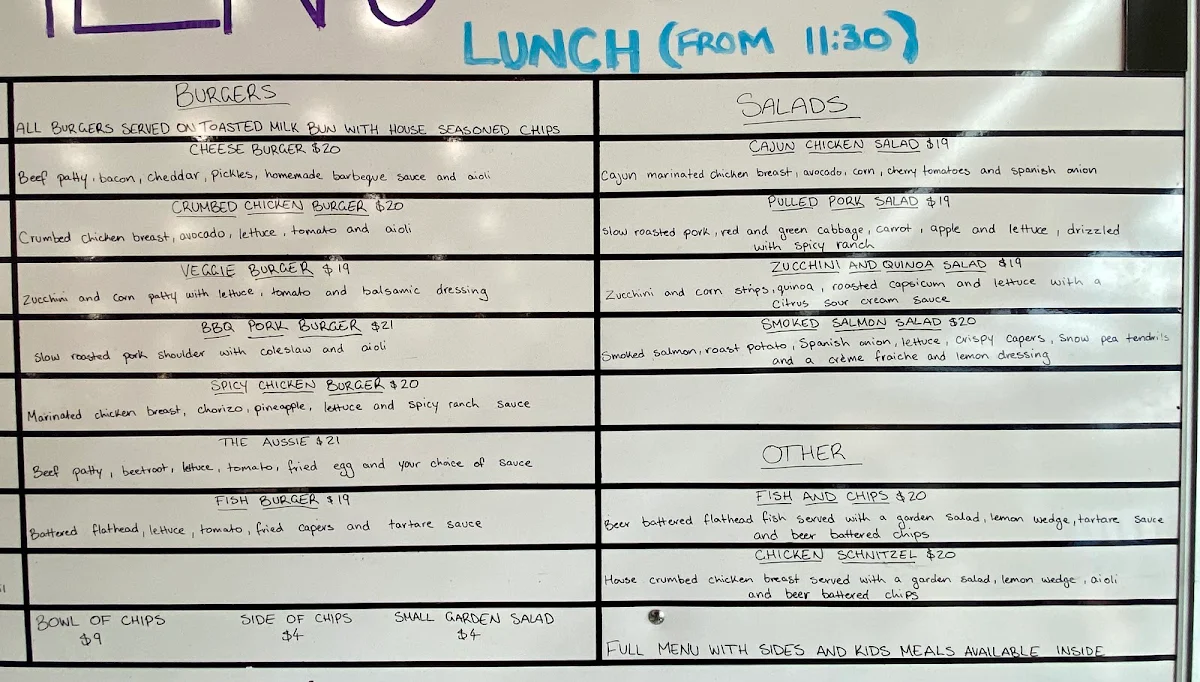 LUNCH (FROM 11:30)
BURGERS
ALL BURGERS SERVED ON TOASTED MILK BUN WITH HOUSE SEASONED CHIPS
CHEESE BURGER $20
Beef patty, bacon, cheddar, pickles, homemade barbeque sauce and aioli
CRUMBED CHICKEN BURGER $20
Crumbed chicken breast, avocado, lettuce, tomato and aioli
VEGGIE BURGER $19
Zucchini and corn patty with lettuce, tomato and balsamic dressing
BBQ PORK BURGER $21
Slow roasted pork shoulder with coleslaw and aioli
SPICY CHICKEN BURGER $20
Marinated chicken breast, chorizo, pineapple, lettuce and spicy ranch sauce
THE AUSSIE $21
Beef patty, beetroot, lettuce, tomato, fried egg and your choice of sauce
FISH BURGER $19
Battered flathead, lettuce, tomato, fried capers and tartare sauce
BOWL OF CHIPS
$9
SIDE OF CHIPS
$4
SMALL GARDEN SALAD
$4
SALADS
CAJUN CHICKEN SALAD $19
Cajun marinated chicken breast, avocado, corn, cherry tomatoes and spanish onion
PULLED PORK SALAD $19
Slow roasted pork, red and green cabbage, carrot, apple and lettuce, drizzled
with spicy ranch
ZUCCHINI AND QUINOA SALAD $19
Zucchini and corn strips, quinoa, roasted capsicum and lettuce with a
citrus sour cream sauce
SMOKED SALMON SALAD $20
Smoked salmon, roast potato, Spanish onion, lettuce, crispy capers, snow pea tendrils
and a crème fraiche and lemon dressing
OTHER
FISH AND CHIPS $20
Beer battered flathead fish served with a garden salad, lemon wedge, tartare sauce
and beer battered chips
CHICKEN SCHNITZEL $20
House crumbed chicken breast served with a garden salad, lemon wedge, aioli
and beer battered chips
FULL MENU WITH SIDES AND KIDS MEALS AVAILABLE INSIDE